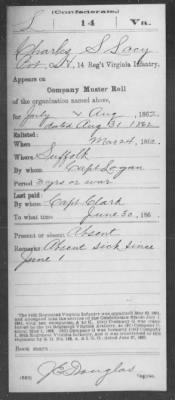 (Confederate.)
L 14 Va.
Charles S. Lacy
Co. H, 14 Reg't Virginia Infantry.
Appears on
Company Muster Roll
of the organization named above,
for July & Aug, 1862.
dated Aug 31 1862
Enlisted:
When Mar 24, 1862.
Where Suffolk
By whom Capt Logan
Period 3 yrs or war
Last paid:
By whom Capt Clark
To what time June 30, 186
Present or absent Absent
Remarks: Absent sick since
June 1
Book mark:
J E Douglas
Copyist.